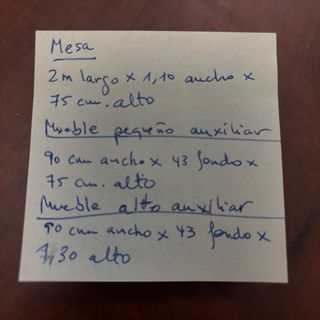 Mesa
2 m largo x 1,10 ancho x
75 cm. alto
Mueble pequeño auxiliar
90 cm ancho x 43 fondo x
75 cm. alto
Mueble alto auxiliar
90 cm ancho x 43 fondo x
1,30 alto